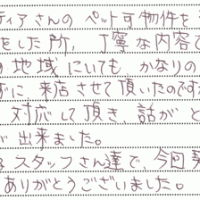 ディアさんのペット可物件を
をした所、丁寧な内容で
地域にいても、かなりの
ずに来店させて頂いたのですが
対応して頂き、話がと
が出来ました。
スタッフさん達で、今回
ありがとうございました。